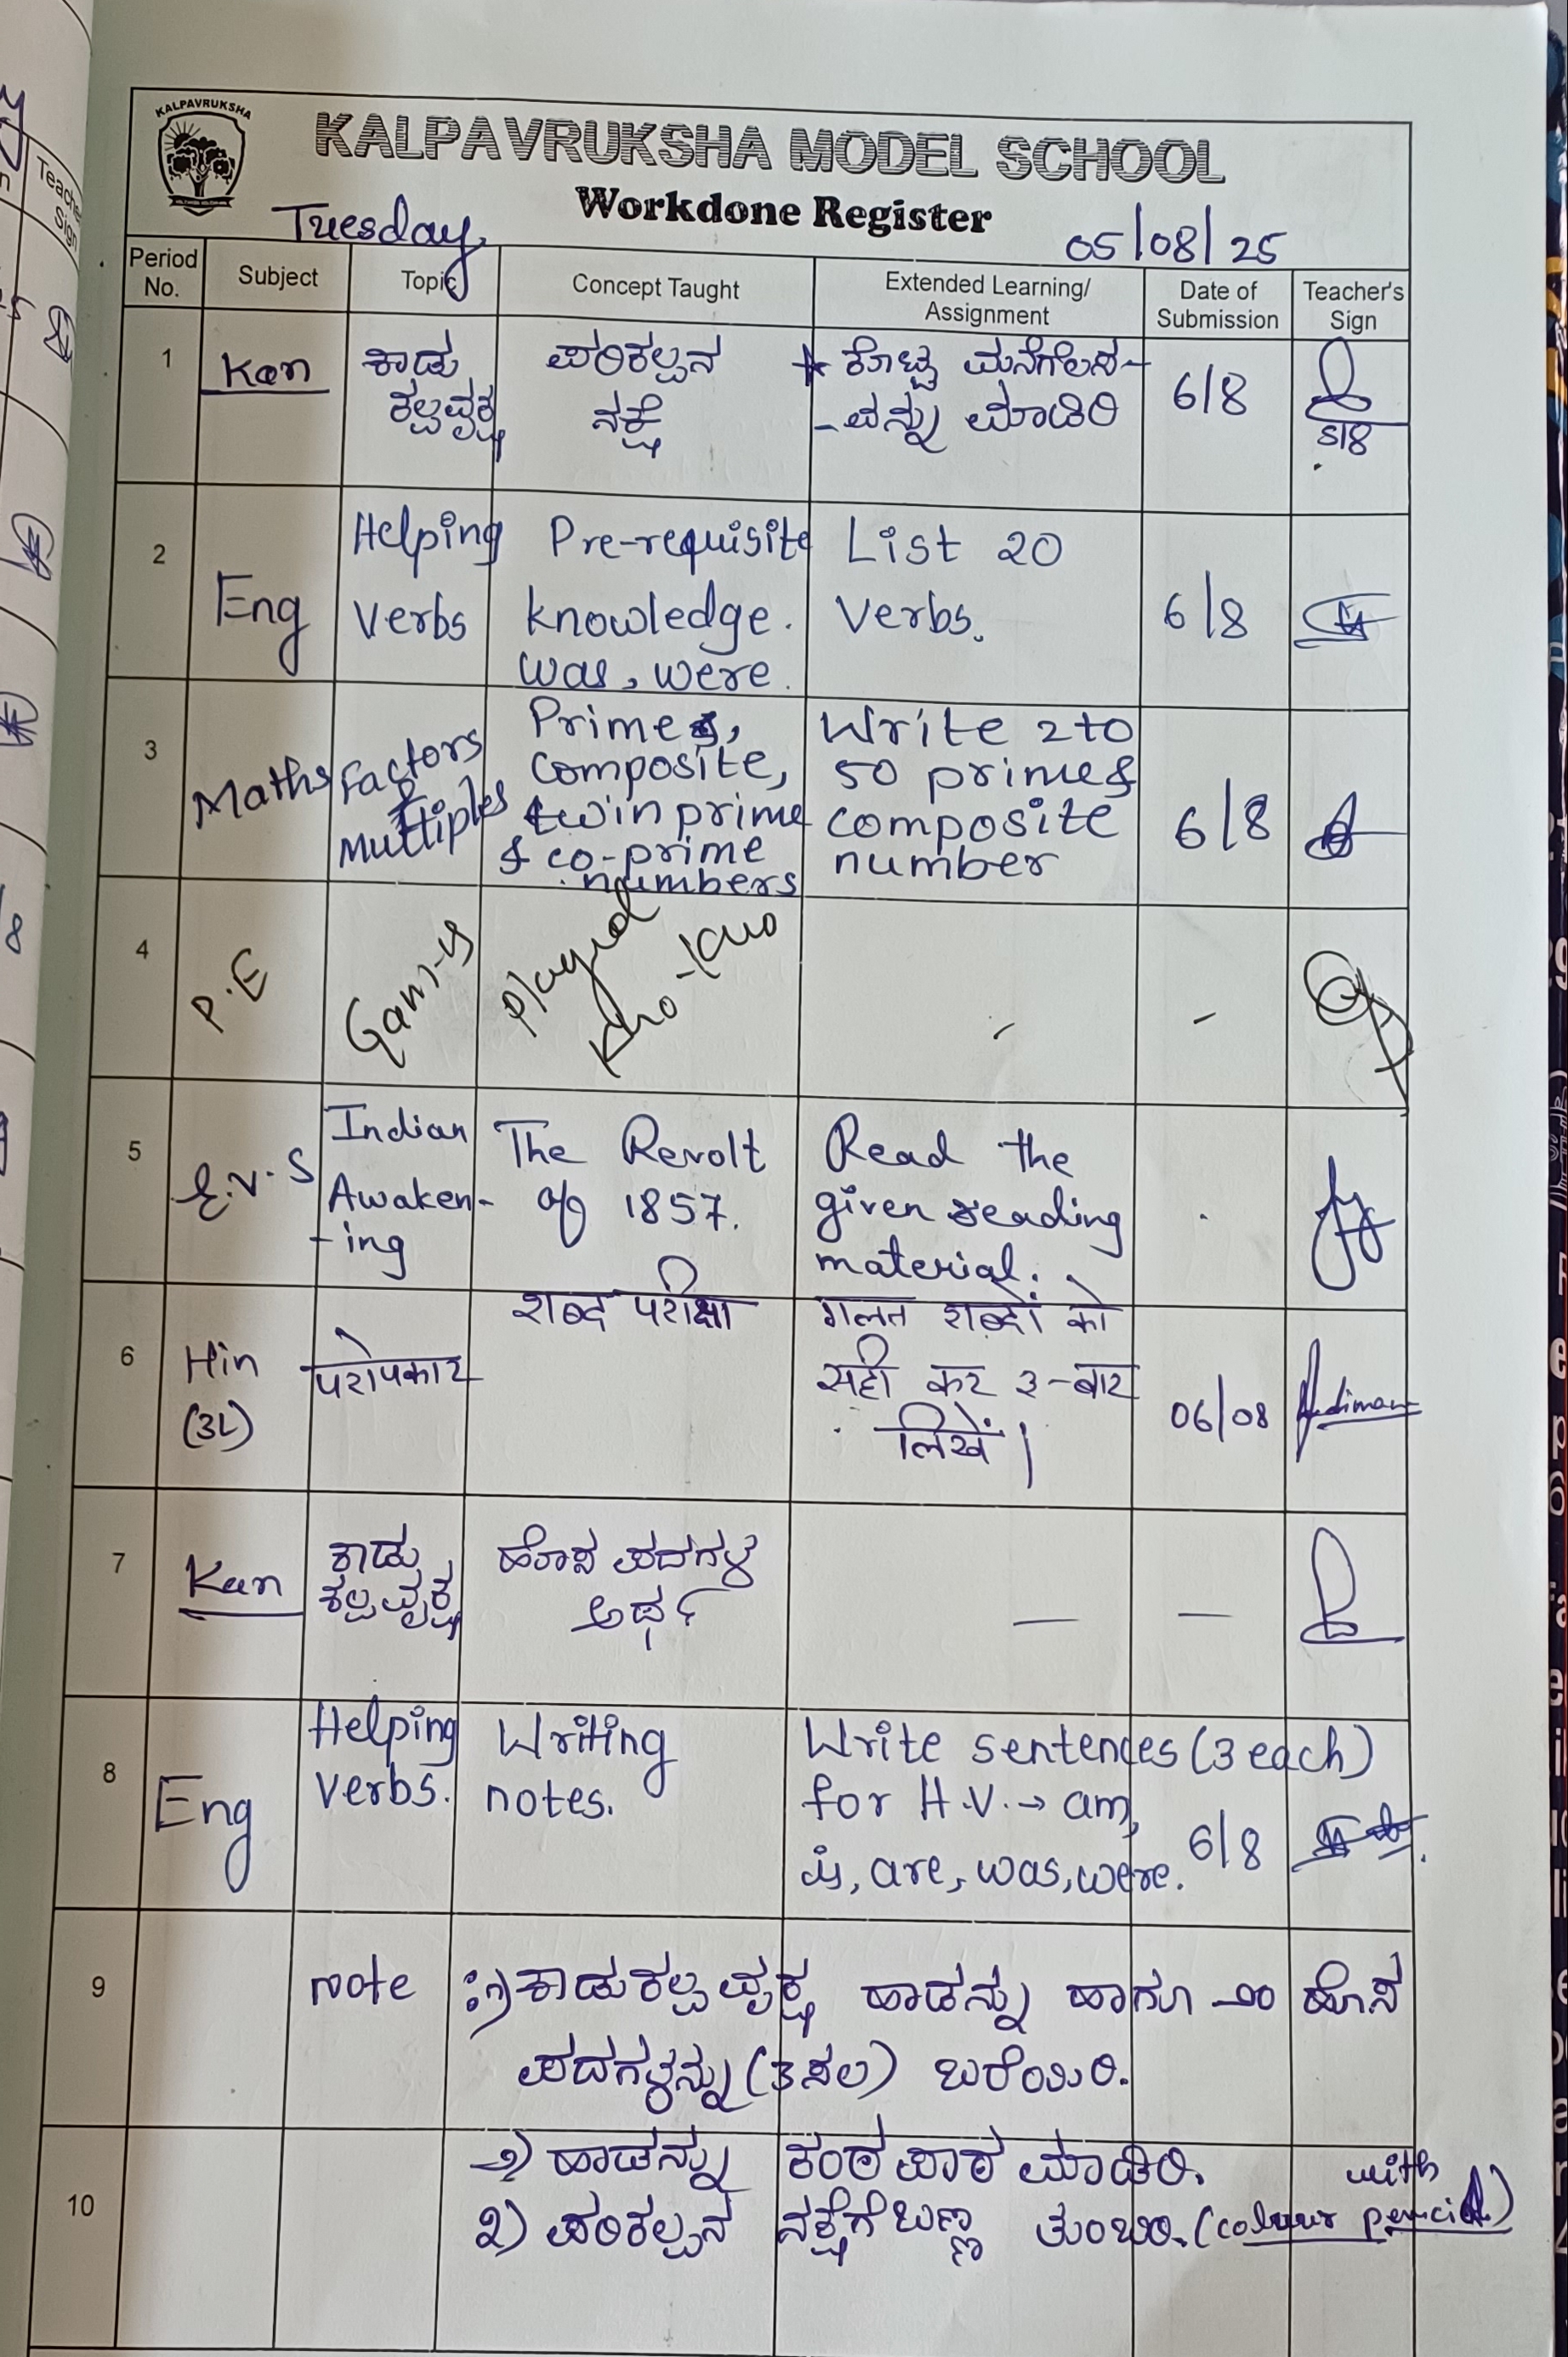 KALPAVRUKSHA
KALPAVRUKSHA MODEL SCHOOL
Workdone Register
Tuesday, 05/08/25
Period No. Subject Topic Concept Taught Extended Learning/ Assignment Date of Submission Teacher's Sign
1 Kan ಕಾಡು ಪರಿಕಲ್ಪನ * ಕೊಟ್ಟ ಮನೆಗೆಲಸ- 6/8
ಕಲ್ಪವೃಕ್ಷ ನಕ್ಷೆ -ವನ್ನು ಮಾಡಿರಿ 5/8
2 Eng Helping Pre-requisite List 20 6/8
verbs knowledge. verbs.
was, were.
3 Maths Factors Prime, Write 2 to 6/8
& composite, 50 prime &
Multiples twin prime composite
& co-prime number
numbers
4 P.E Games Played - -
Kho-Kho
5 E.V.S Indian The Revolt Read the
Awaken- of 1857. given reading
-ing material.
6 Hin परोपकार शब्द परीक्षा गलत शब्दों को 06/08
(3L) सही कर ३-बार
लिखें।
7 Kan ಕಾಡು ಹೊಸ ಪದಗಳ — —
ಕಲ್ಪವೃಕ್ಷ ಅರ್ಥ
8 Eng Helping Writing Write sentences (3 each)
verbs. notes. for H.V. → am, 6/8
is, are, was, were.
9 note :೧) ಕಾಡುಕಲ್ಪವೃಕ್ಷ ಹಾಡನ್ನು ಹಾಗೂ ೨೦ ಹೊಸ
ಪದಗಳನ್ನು (3 ಸಲ) ಬರೆಯಿರಿ.
10 ೨) ಹಾಡನ್ನು ಕಂಠಪಾಠ ಮಾಡಿರಿ.
೩) ಪರಿಕಲ್ಪನ ನಕ್ಷೆಗೆ ಬಣ್ಣ ತುಂಬಿರಿ. (with colour pencil)